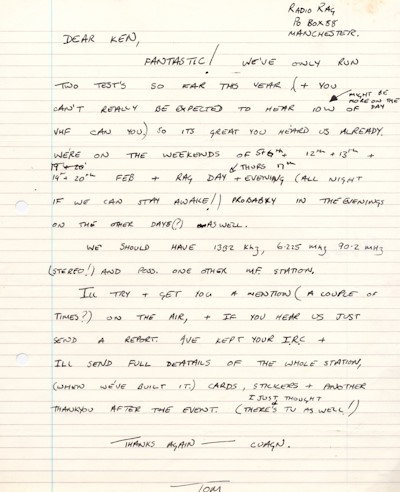 RADIO RAG
PO BOX 88
MANCHESTER.
DEAR KEN,
FANTASTIC! WE'VE ONLY RUN
TWO TEST'S SO FAR THIS YEAR (+ YOU
MIGHT BE
MORE ON THE
DAY
CAN'T REALLY BE EXPECTED TO HEAR 10W OF
VHF CAN YOU) SO ITS GREAT YOU HEARD US ALREADY.
WE'RE ON THE WEEKENDS OF 5th + 6th + 12th + 13th +
19th + 20th FEB + RAG DAY + EVENING (ALL NIGHT
THURS 17th
IF WE CAN STAY AWAKE!) PROBABLY IN THE EVENINGS
ON THE OTHER DAYS(?) AS WELL.
WE SHOULD HAVE 1332 Khz, 6.225 mhz 90.2 mHz
(STEREO!) AND POSS. ONE OTHER M.F. STATION.
ILL TRY + GET YOU A MENTION (A COUPLE OF
TIMES?) ON THE AIR, + IF YOU HEAR US JUST
SEND A REPORT. IVE KEPT YOUR I.R.C +
ILL SEND FULL DETATAILS OF THE WHOLE STATION,
(WHEN WE'VE BUILT IT.) CARDS, STICKERS + ANOTHER
I JUST THOUGHT
THANKYOU AFTER THE EVENT. (THERE'S TV AS WELL!)
THANKS AGAIN — CUAGN.
TOM